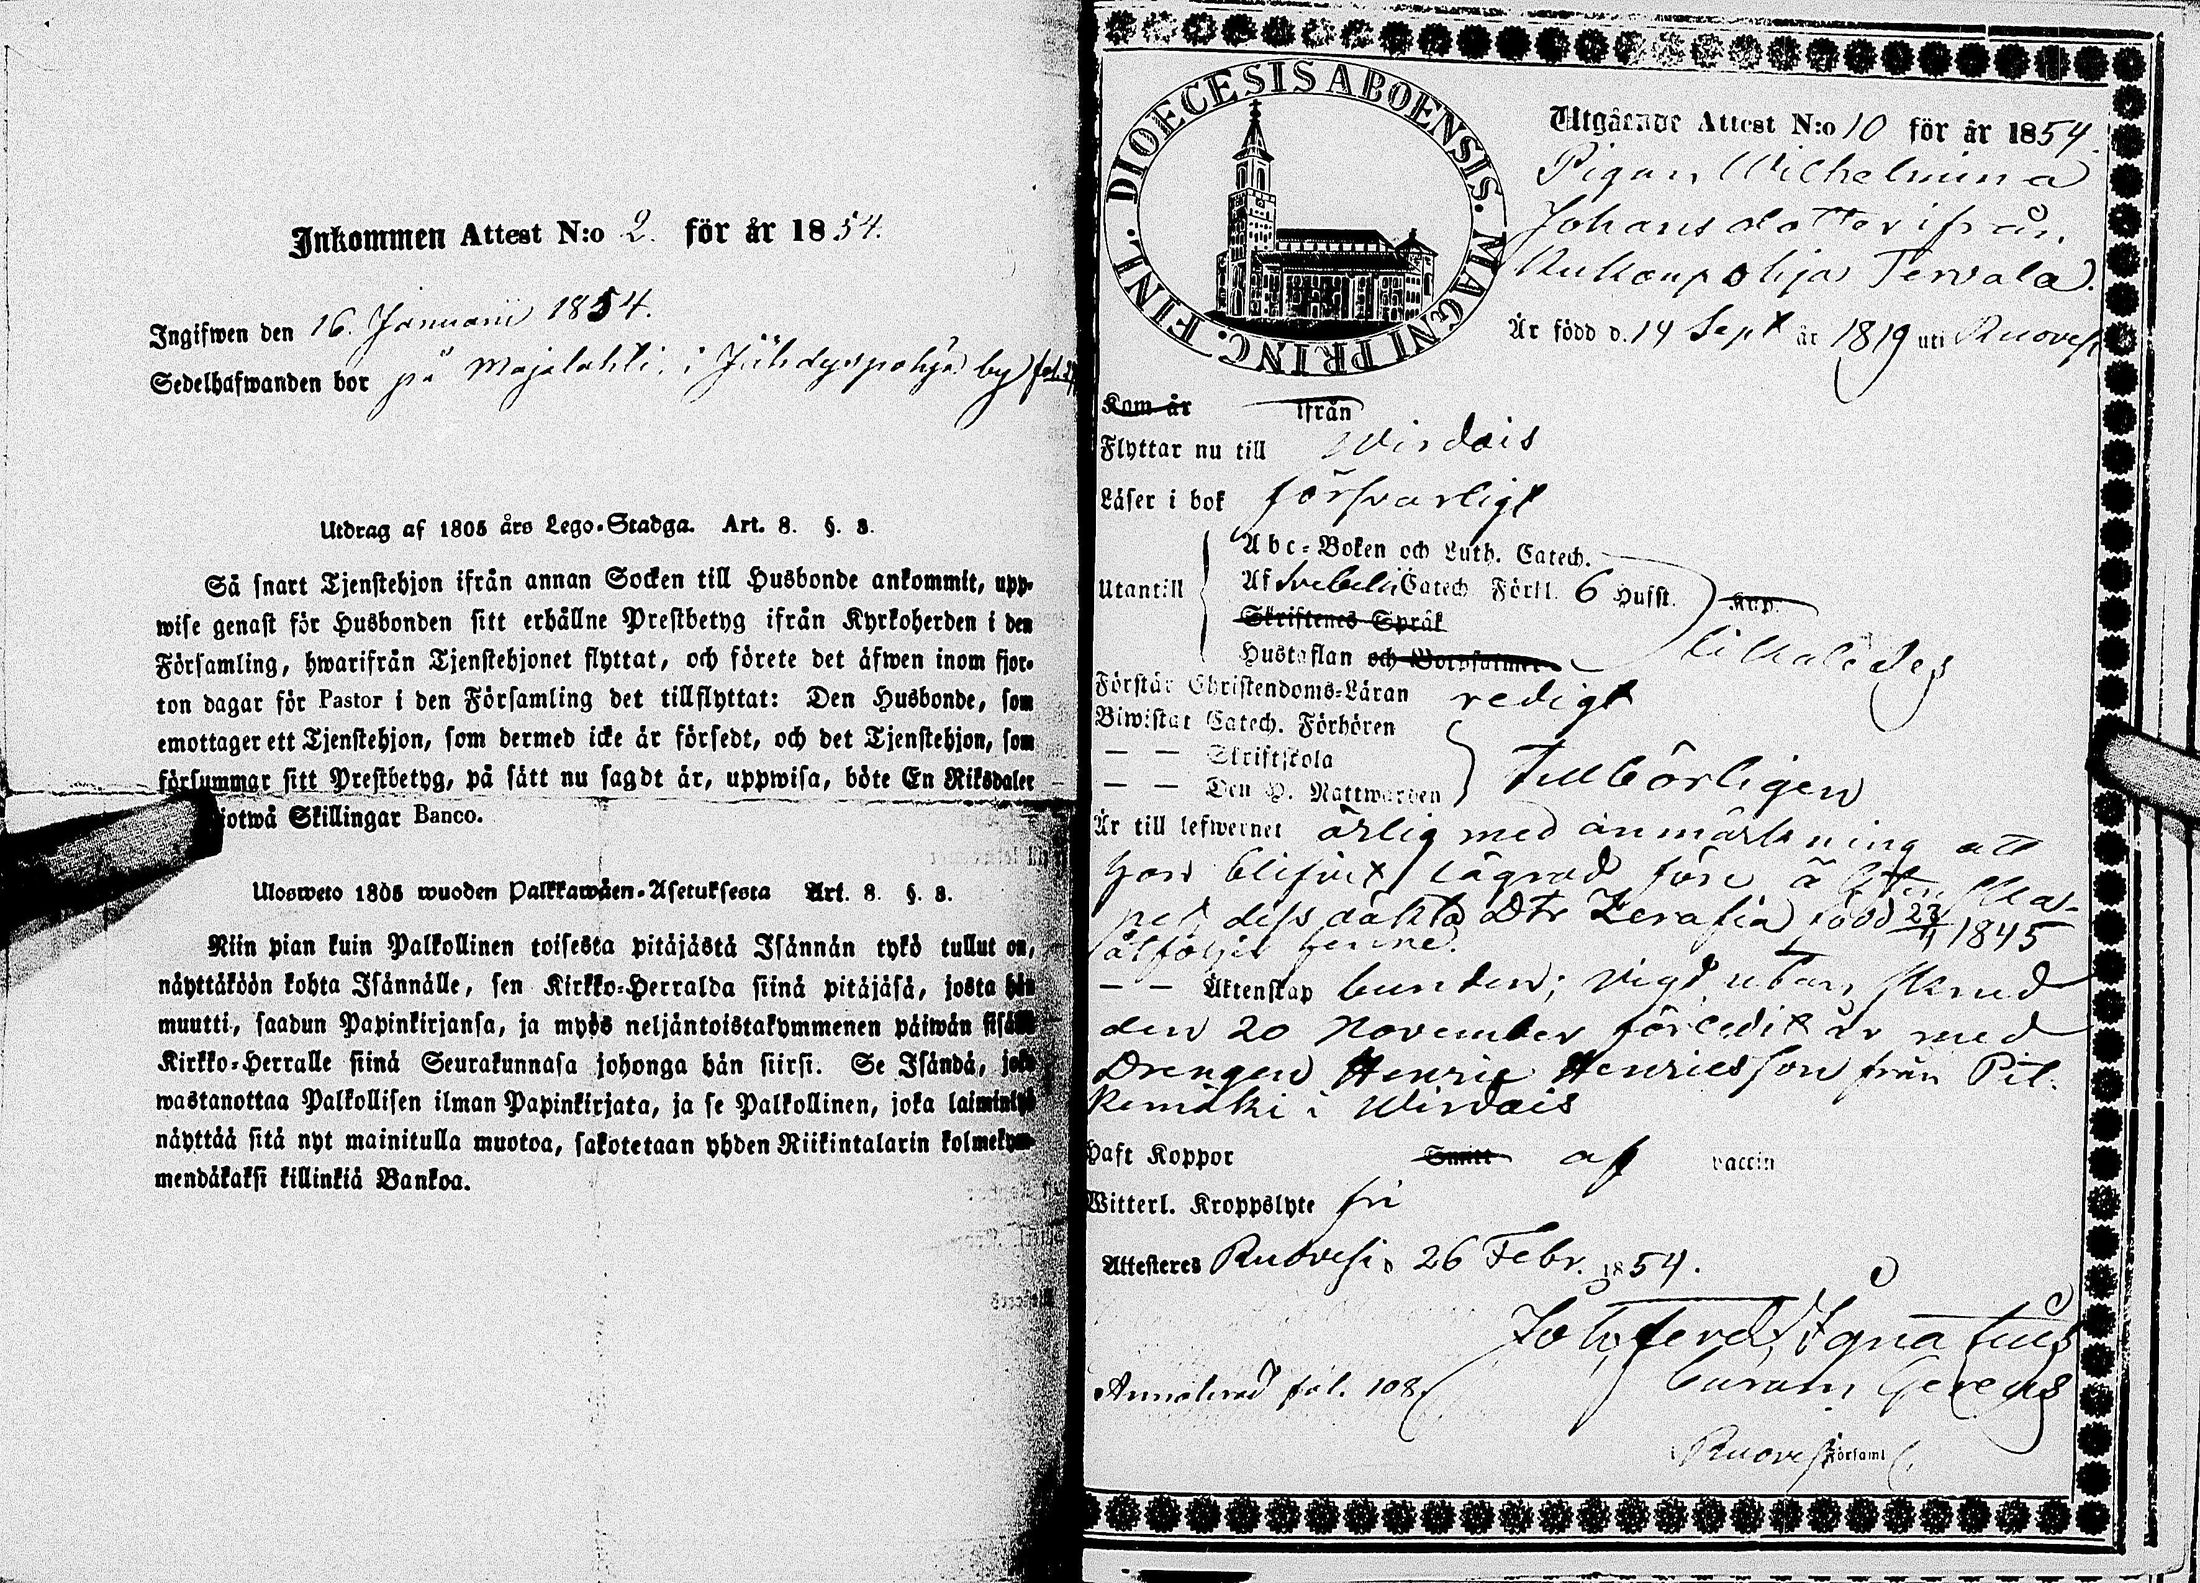 Inkommen Attest N:o 2. för år 1854.
Ingifwen den 16. Januarii 1854.
Sedelhafwanden bor på Majalahti, i Jähdyspohja by fol.
Utdrag af 1805 års Lego-Stadga. Art. 8. §. 3.
Så snart Tjenstehjon ifrån annan Socken till Husbonde ankommit, upp-
wise genast för Husbonden sitt erhållne Prestbetyg ifrån Kyrkoherden i den
Församling, hwarifrån Tjenstehjonet flyttat, och förete det äfwen inom fjor-
ton dagar för Pastor i den Församling det tillflyttat: Den Husbonde, som
emottager ett Tjenstehjon, som dermed icke är försedt, och det Tjenstehjon, som
försummar sitt Prestbetyg, på sätt nu sagdt är, uppwisa, böte En Riksdaler
iotwå Skillingar Banco.
Ulosweto 1805 wuoden Palkkawäen-Asetuksesta Art. 8. §. 3.
Niin pian kuin Palkollinen toisesta pitäjästä Isännän tykö tullut on,
näyttäköön kohta Isännälle, sen Kirkko-Herralda siinä pitäjäsä, josta hän
muutti, saadun Papinkirjansa, ja myös neljäntoistakymmenen päiwän sisällä
Kirkko-Herralle siinä Seurakunnasa johonga hän siirsi. Se Isändä, joka
wastanottaa Palkollisen ilman Papinkirjata, ja se Palkollinen, joka laiminlyö
näyttää sitä nyt mainitulla muotoa, sakotetaan yhden Riikintalarin kolmekym-
mendäkaksi killinkiä Bankoa.
DIOECESIS ABOENSIS. MAGNI PRINC. FINL.
Utgående Attest N:o 10 för år 1854.
Pigan Wilhelmina
Johansdotter ifrån
Ruhanpohja Tervala.
Är född d. 14 Sept år 1819 uti Ruovesi
Kom år ifrån
Flyttar nu till Wirdois
Läser i bok försvarligt
Utantill
Abc-Boken och Luth. Catech.
Af Svebelii Catech Förkl. 6 Hufst. Kap.
Skriftenes Språk
Hustaflan och Botpsalmer
Förstår Christendoms-Läran redigt
Biwistat Catech. Förhören
— — Skriftskola
— — Den H. Nattwarden
tillbörligen
Är till lefwernet ärlig med anmärkning att
hon blifvit lägrad före
dess oäkta Dtr Serafia född 23/11 1845
åtföljer henne.
— — Äktenskap bunden; vigd utan
den 20 November förledit år med
Drengen Henric Henricsson från Pil-
kemäki i Wirdois
Haft Koppor Smitt af vaccin
Witterl. Kroppslyte fri
Attesteres Ruovesi, 26 Febr. 1854.
Joh. Ferd. Ignatius
Curam Gerens
Annoterad fol. 108.
i Ruovesi Församl